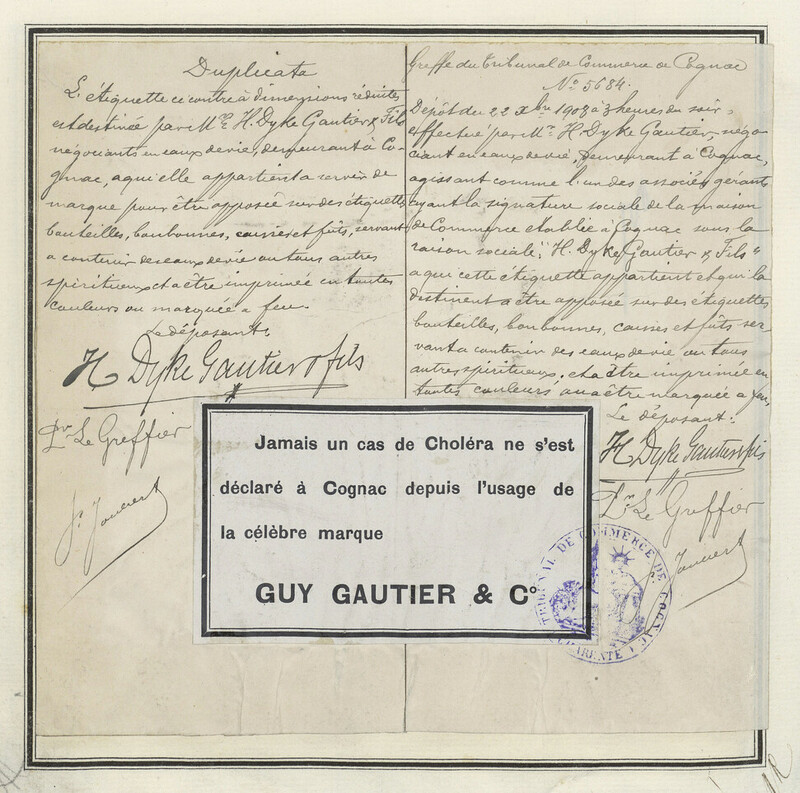 Duplicata
L'étiquette ci contre à dimensions réduites
est destinée par Mrs H. Dyke Gautier & Fils
négociants en eaux de vie, demeurant à Co-
gnac, a qui elle appartient a servir de
marque pour être apposée sur des étiquettes
bouteilles, bonbonnes, caisses et fûts, servant
a contenir des eaux de vie ou tous autres
spiritueux et a être imprimée en toutes
couleurs ou marquée a feu.
Le déposant,
H Dyke Gautier & fils
Pr Le Greffier
Greffe du Tribunal de Commerce de Cognac
No 5684.
Dépôt du 22 Xbre 1903 à 3 heures du soir
effectué par Mr H. Dyke Gautier, négo-
ciant en eaux de vie, demeurant à Cognac,
agissant comme l'un des associés gérants
ayant la signature sociale de la maison
de Commerce établie à Cognac sous la
raison sociale "H. Dyke Gautier & Fils"
a qui cette étiquette appartient et qui la
destinent a être apposée sur des étiquettes
bouteilles, bonbonnes, caisses et fûts ser-
vant a contenir des eaux de vie ou tous
autres spiritueux et a être imprimée en
toutes couleurs ou a être marquée a feu,
Le déposant:
H Dyke Gautier & fils
Pr Le Greffier
Jamais un cas de Choléra ne s'est
déclaré à Cognac depuis l'usage de
la célèbre marque
GUY GAUTIER & Co
TRIBUNAL DE COMMERCE DE COGNAC
CHARENTE